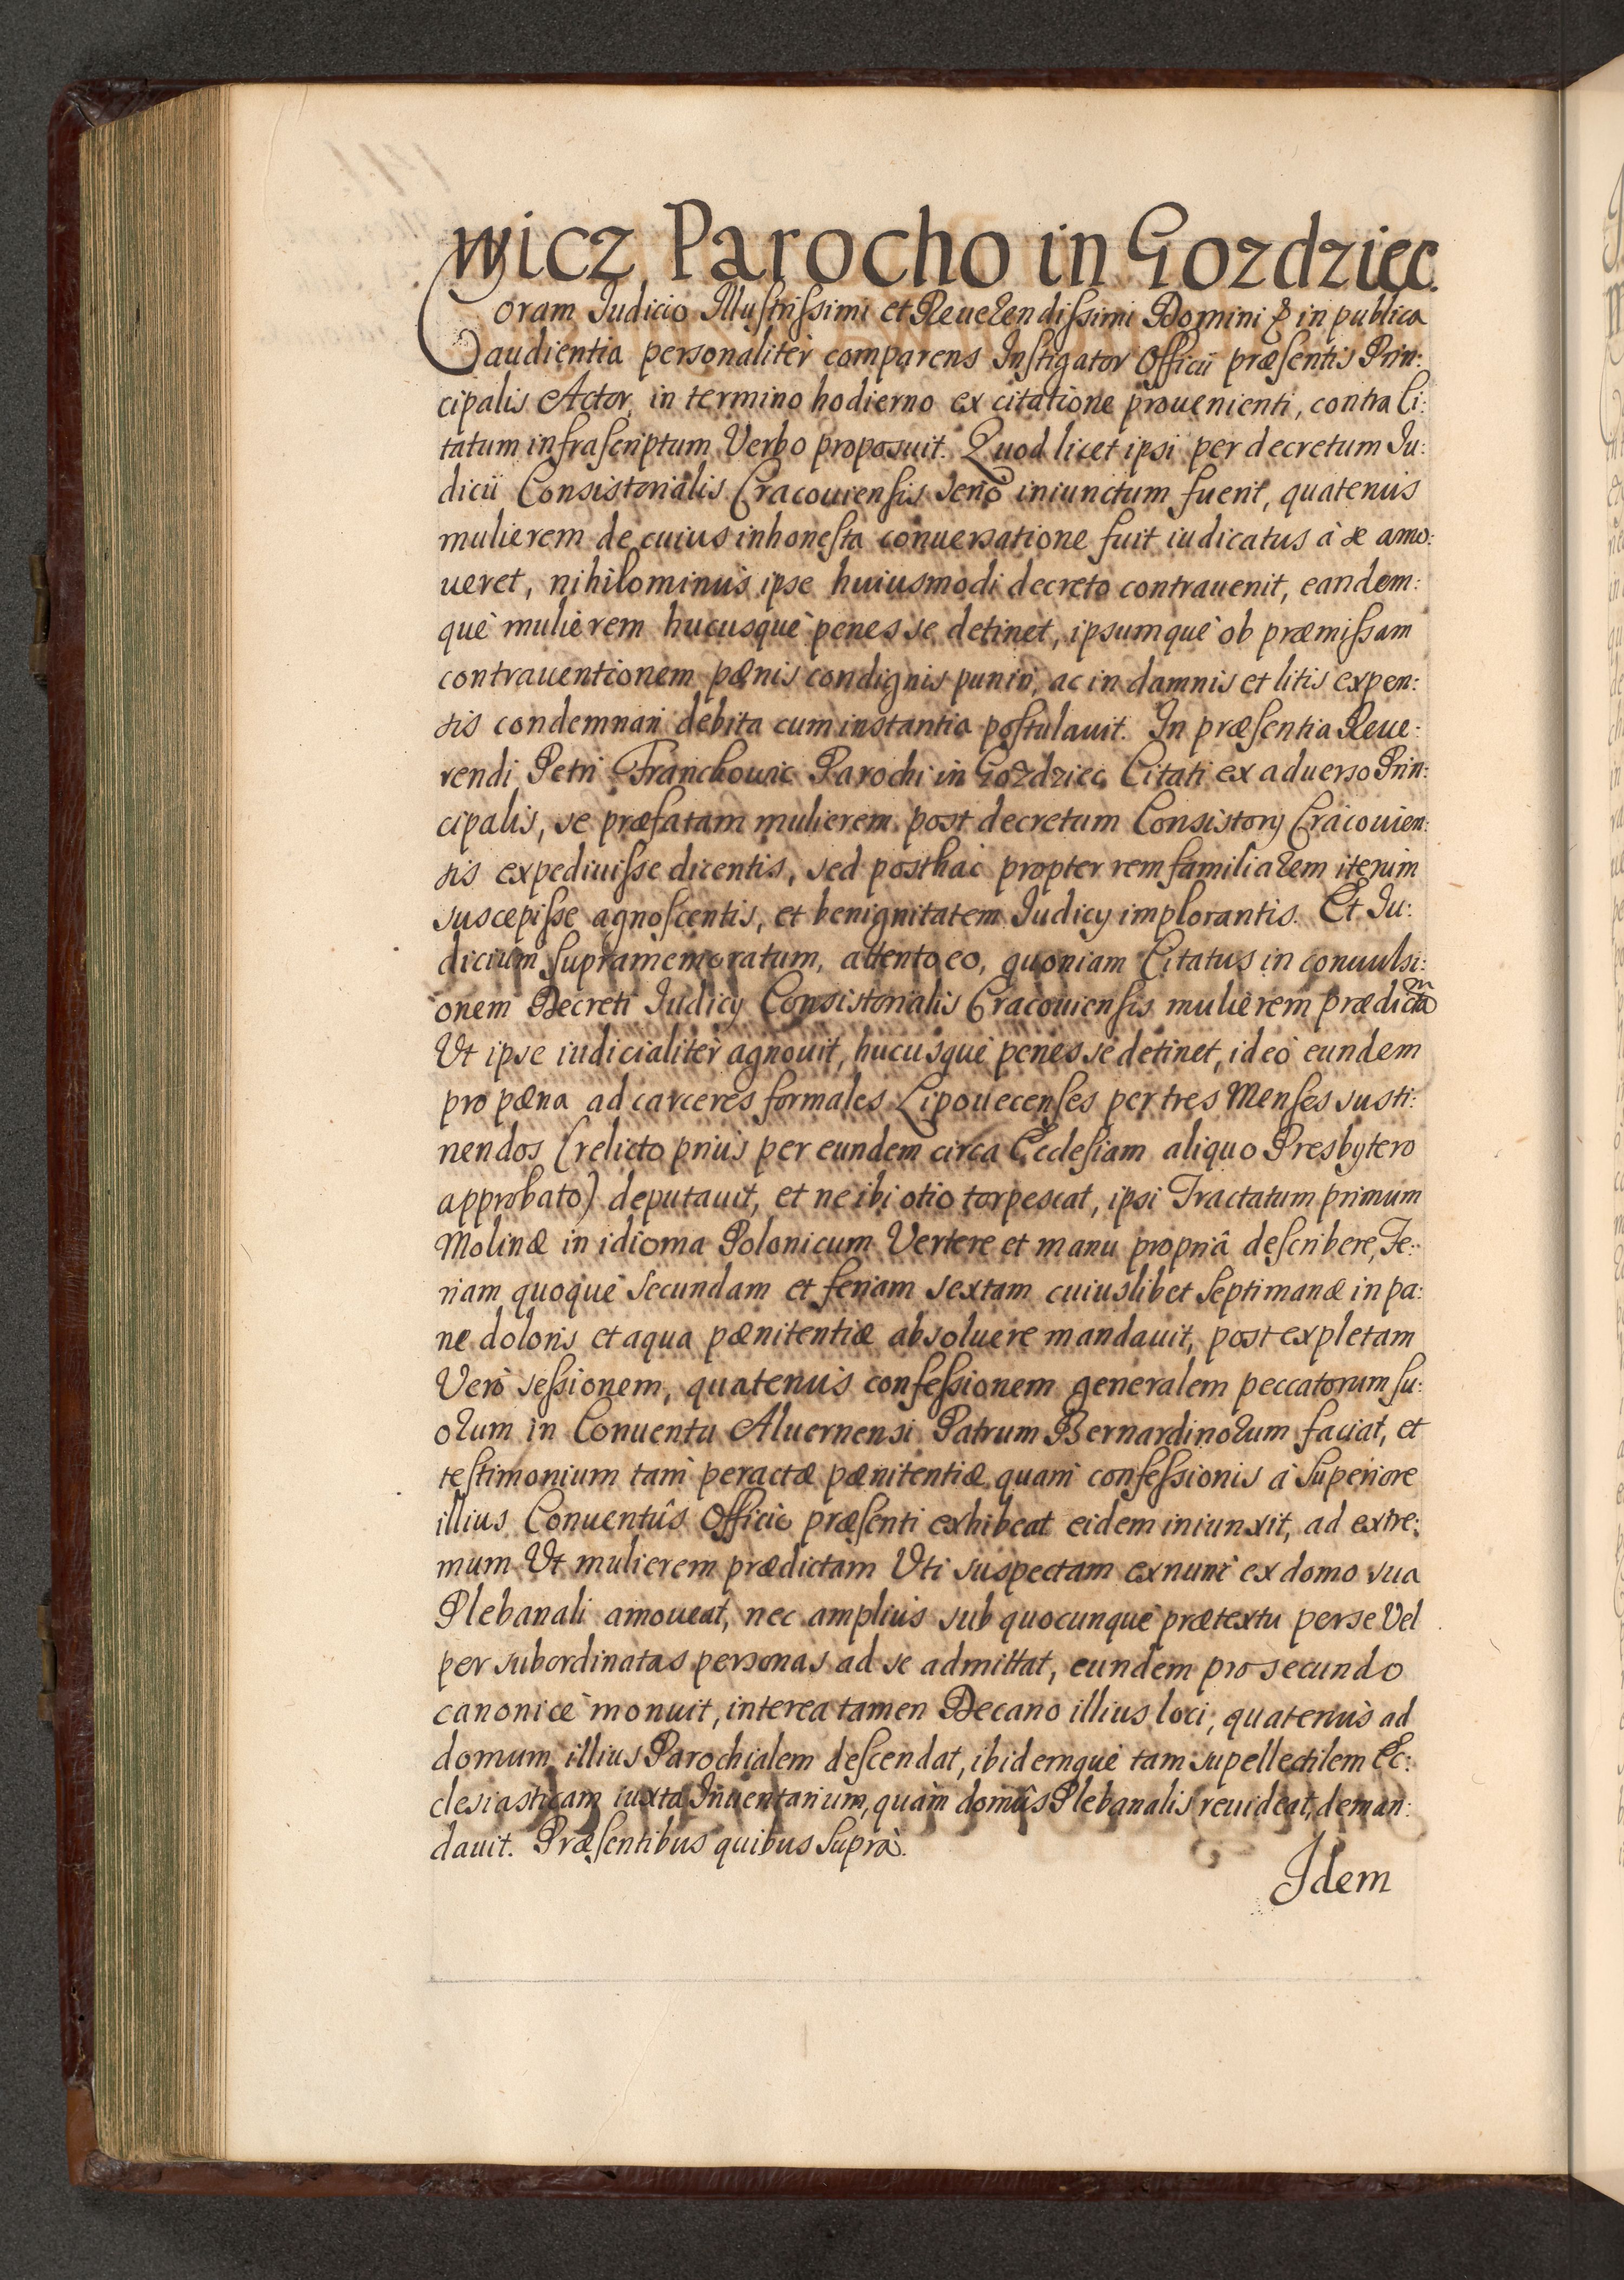 wicz Parocho in Gozdziec.
Coram Judicio Illustrissimi et Reuerendissimi Domini & in publica
audientia personaliter comparens Instigator Officii præsentis Prin:
cipalis Actor, in termino hodierno ex citatione prouenienti, contra Ci:
tatum infrascriptum Verbo proposuit. Quod licet ipsi per decretum Ju:
dicii Consistorialis Cracouiensis seriò iniunctum fuerit, quatenus
mulierem de cuius inhonesta conuersatione fuit iudicatus à se amo:
ueret, nihilominus ipse huiusmodi decreto contrauenit, eandem:
què mulierem hucusquè penes se detinet, ipsumquè ob præmissam
contrauentionem pænis condignis puniri, ac in damnis et litis expen:
sis condemnari debita cum instantia postulauit. In præsentia Reue:
rendi Petri Franckouic Parochi in Gozdziec Citati ex aduerso Prin:
cipalis, se præfatam mulierem post decretum Consistorij Cracouien:
sis expediuisse dicentis, sed posthac propter rem familiarem iterum
suscepisse agnoscentis, et benignitatem Judicij implorantis. Et Ju:
dicium supramemoratum, attento eo, quoniam Citatus in conuulsi:
onem Decreti Judicij Consistorialis Cracouiensis mulierem prædictam
Vt ipse iudicialiter agnouit, hucusquè penes se detinet, ideò eundem
pro pæna ad carceres formales Lipouecenses per tres Menses susti:
nendos (relicto prius per eundem circa Ecclesiam aliquo Presbytero
approbato) deputauit, et ne ibi otio torpescat, ipsi Tractatum primum
Molinæ in idioma Polonicum Vertere et manu propriâ describere, Fe:
riam quoquè secundam et feriam sextam cuiuslibet septimanæ in pa:
ne doloris et aqua pænitentiæ absoluere mandauit, post expletam
Verò sessionem, quatenus confessionem generalem peccatorum su:
orum in Conuentu Aluernensi Patrum Bernardinorum faciat, et
testimonium tam peractæ pænitentiæ quam confessionis à Superiore
illius Conuentûs Officio præsenti exhibeat eidem iniunxit, ad extre:
mum Vt mulierem prædictam Vti suspectam exnunc ex domo sua
Plebanali amoueat, nec amplius sub quocunquè prætextu per se Vel
per subordinatas personas ad se admittat, eundem pro secundo
canonicè monuit, interea tamen Decano illius loci, quatenus ad
domum illius Parochialem descendat, ibidemquè tam supellectilem Ec:
clesiasticam iuxta Inuentarium, quàm domûs Plebanalis reuideat, deman:
dauit. Præsentibus quibus suprà.
Idem